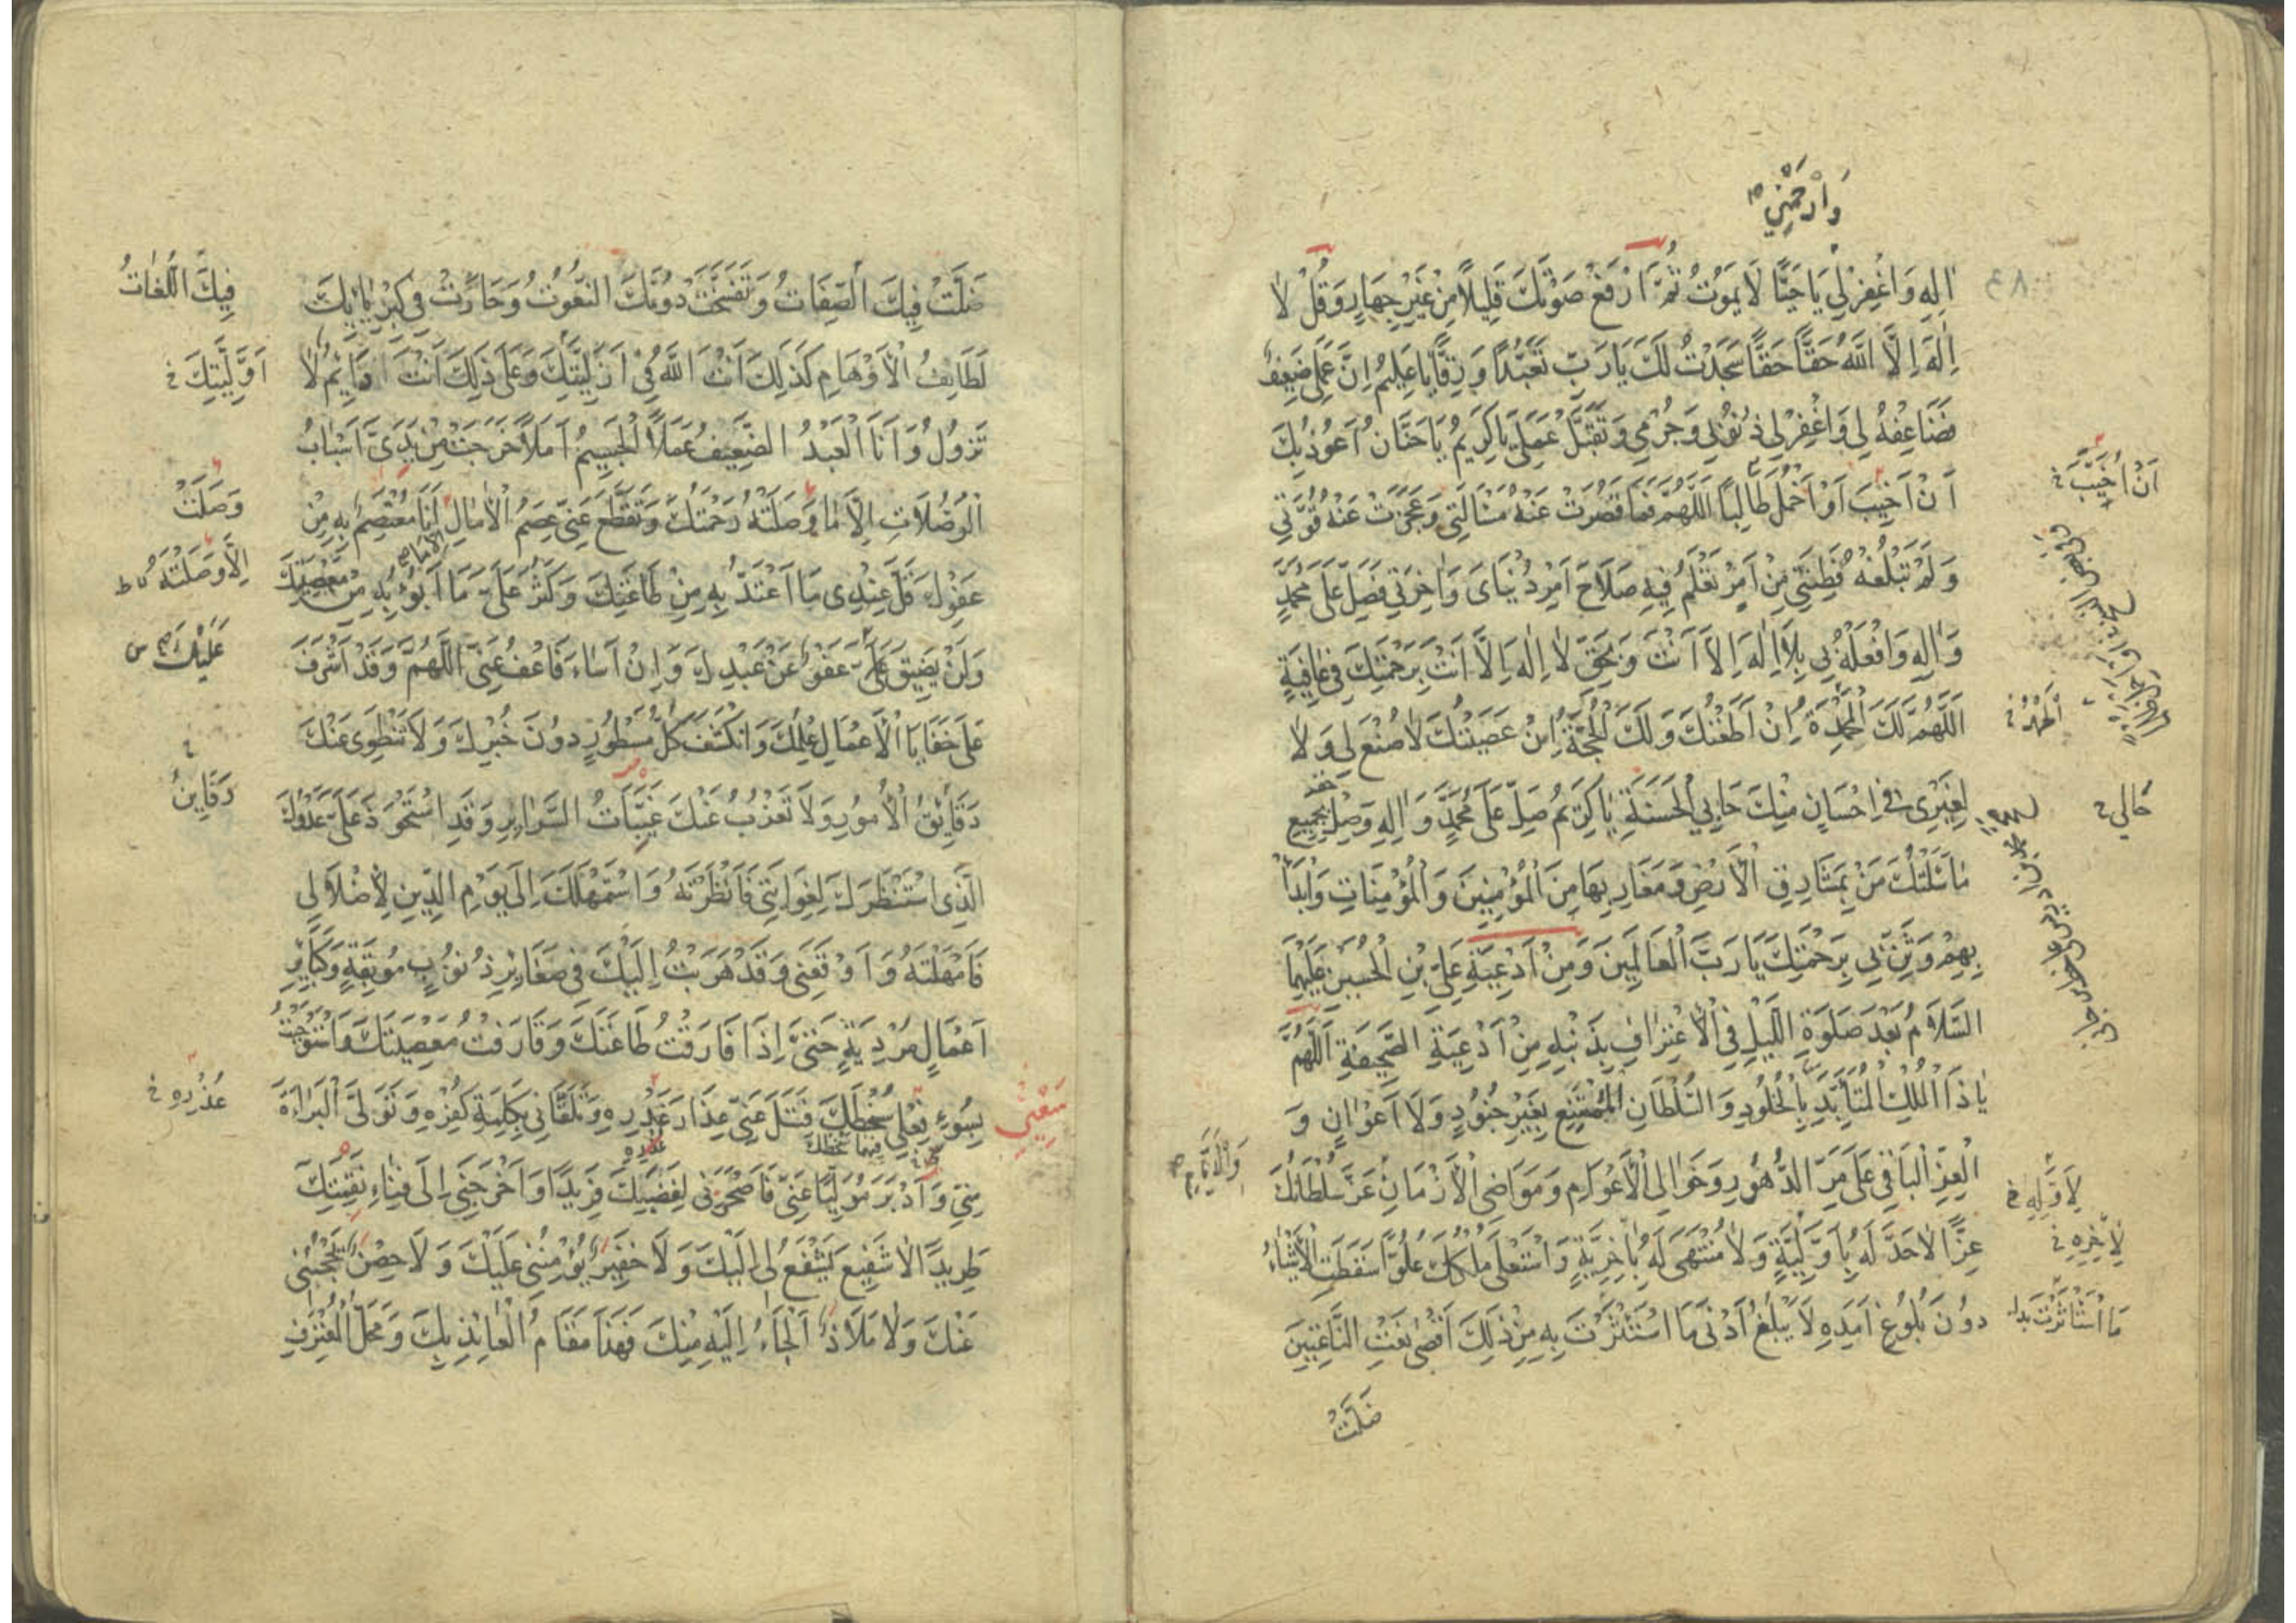 وَارْحَمْنِي
اٰلِهِ وَاغْفِرْ لِي يَا حَيًّا لَا يَمُوتُ ثُمَّ ارْفَعْ صَوْتَكَ قَلِيلًا مِنْ غَيْرِ جِهَارٍ وَقُلْ لَا
اِلٰهَ اِلَّا اللّٰهُ حَقًّا حَقًّا سَجَدْتُ لَكَ يَا رَبِّ تَعَبُّدًا وَرِقًّا يَا عَظِيمُ اِنَّ عَمَلِي ضَعِيفٌ
فَضَاعِفْهُ لِي وَاغْفِرْ لِي ذُنُوبِي وَجُرْمِي وَتَقَبَّلْ عَمَلِي يَا كَرِيمُ يَا حَنَّانُ اَعُوذُ بِكَ
اَنْ اَخِيبَ اَوْ اَحْمِلَ ظُلْمًا اَللّٰهُمَّ مَا قَصُرَتْ عَنْهُ مَسْأَلَتِي وَعَجَزَتْ عَنْهُ قُوَّتِي
اَنْ اُخَيَّبَ
وَلَمْ تَبْلُغْهُ فِطْنَتِي مِنْ اَمْرٍ تَعْلَمُ فِيهِ صَلَاحَ اَمْرِ دُنْيَايَ وَاٰخِرَتِي فَصَلِّ عَلٰى مُحَمَّدٍ
وَاٰلِهِ وَافْعَلْهُ بِي بِلَا اِلٰهَ اِلَّا اَنْتَ وَبِحَقِّ لَا اِلٰهَ اِلَّا اَنْتَ بِرَحْمَتِكَ فِي عَافِيَةٍ
اَللّٰهُمَّ لَكَ الْمَحْمِدَةُ اِنْ اَطَعْتُكَ وَلَكَ الْحُجَّةُ اِنْ عَصَيْتُكَ لَا صُنْعَ لِي وَلَا
لِغَيْرِي فِي اِحْسَانٍ مِنْكَ حَالِي الْحَسَنَةِ يَا كَرِيمُ صَلِّ عَلٰى مُحَمَّدٍ وَاٰلِهِ وَصِلْ بِجَمِيعِ
حَالِي
مَا سَئَلْتُكَ مَنْ بِمَشَارِقِ الْاَرْضِ وَمَغَارِبِهَا مِنَ الْمُؤْمِنِينَ وَالْمُؤْمِنَاتِ وَابْدَأْ
بِهِمْ وَثَنِّ بِي بِرَحْمَتِكَ يَا رَبَّ الْعَالَمِينَ وَمِنْ اَدْعِيَةِ عَلِيِّ بْنِ الْحُسَيْنِ عَلَيْهِمَا
السَّلَامُ بَعْدَ صَلٰوةِ اللَّيْلِ فِي الْاِعْتِرَافِ بِذَنْبِهِ مِنْ اَدْعِيَةِ الصَّحِيفَةِ اَللّٰهُمَّ
يَا ذَا الْمُلْكِ الْمُتَأَبِّدِ بِالْخُلُودِ وَالسُّلْطَانِ الْمُمْتَنِعِ بِغَيْرِ جُنُودٍ وَلَا اَعْوَانٍ وَ
الْعِزِّ الْبَاقِي عَلٰى مَرِّ الدُّهُورِ وَخَوَالِي الْاَعْوَامِ وَمَوَاضِي الْاَزْمَانِ عَزَّ سُلْطَانُكَ
وَالْاَيَّامِ
لِاَوَّلِهِ
عِزًّا لَا حَدَّ لَهُ بِاَوَّلِيَّةٍ وَلَا مُنْتَهٰى لَهُ بِاٰخِرِيَّةٍ وَاسْتَعْلٰى مُلْكُكَ عُلُوًّا سَقَطَتِ الْاَشْيَاءُ
لِاٰخِرِهِ
دُونَ بُلُوغِ اَمَدِهِ لَا يَبْلُغُ اَدْنٰى مَا اسْتَأْثَرْتَ بِهِ مِنْ ذٰلِكَ اَقْصٰى نَعْتِ النَّاعِتِينَ
مَا اسْتَأْثَرْتَ
ضَلَّتْ
ضَلَّتْ فِيكَ الصِّفَاتُ وَتَفَسَّخَتْ دُونَكَ النُّعُوتُ وَحَارَتْ فِي كِبْرِيَائِكَ
فِيكَ اللُّغَاتُ
لَطَائِفُ الْاَوْهَامِ كَذٰلِكَ اَنْتَ اللّٰهُ فِي اَزَلِيَّتِكَ وَعَلٰى ذٰلِكَ اَنْتَ دَائِمٌ لَا
اَوَّلِيَّتِكَ
تَزُولُ وَاَنَا الْعَبْدُ الضَّعِيفُ عَمَلًا الْجَسِيمُ اَمَلًا خَرَجَتْ مِنْ يَدَيَّ اَسْبَابُ
الْوُصُلَاتِ اِلَّا مَا وَصَلَتْهُ رَحْمَتُكَ وَتَقَطَّعَ عَنِّي عِصَمُ الْاٰمَالِ اَنَا مُعْتَصِمٌ بِهِ مِنْ
وَصَلَتْ
عَفْوِكَ قَلَّ عِنْدِي مَا اَعْتَدُّ بِهِ مِنْ طَاعَتِكَ وَكَثُرَ عَلَيَّ مَا اَبُوءُ بِهِ مِنْ مَعْصِيَتِكَ
اِلَّا وَصَلَتْهُ
وَلَنْ يَضِيقَ عَلَيَّ عَفْوٌ عَنْ عَبْدِكَ وَاِنْ اَسَاءَ فَاعْفُ عَنِّي اَللّٰهُمَّ وَقَدْ اَشْرَفَ
عَلَيْكَ
عَلٰى خَفَايَا الْاَعْمَالِ عِلْمُكَ وَانْكَشَفَ كُلُّ مَسْتُورٍ دُونَ خُبْرِكَ وَلَا تَنْطَوِي عَنْكَ
دَقَايِقُ الْاُمُورِ وَلَا تَعْزُبُ عَنْكَ غَيِّبَاتُ السَّرَايِرِ وَقَدِ اسْتَحْوَذَ عَلَيَّ عَدُوُّكَ
الَّذِي اسْتَنْظَرَكَ لِغِوَايَتِي فَاَنْظَرْتَهُ وَاسْتَمْهَلَكَ اِلٰى يَوْمِ الدِّينِ لِاِضْلَالِي
فَاَمْهَلْتَهُ وَاَوْقَعَنِي وَقَدْ هَرَبْتُ اِلَيْكَ فِي صَغَايِرِ ذُنُوبٍ مُوبِقَةٍ وَكَبَايِرِ
اَعْمَالٍ مُرْدِيَةٍ حَتّٰى اِذَا فَارَقْتُ طَاعَتَكَ وَقَارَفْتُ مَعْصِيَتَكَ وَاسْتَوْجَبْتُ
بِسُوءِ فِعْلِي سُخْطَكَ فَتَلَ عَنِّي عِذَارَ غَدْرِهِ وَتَلَقَّانِي بِكَلِمَةِ كُفْرِهِ وَتَوَلَّى الْبَرَاءَةَ
مِنِّي وَاَدْبَرَ مُوَلِّيًا عَنِّي فَاَصْحَرَنِي لِغَضَبِكَ فَرِيدًا وَاَخْرَجَنِي اِلٰى فِنَاءِ نَقِمَتِكَ
طَرِيدًا لَا شَفِيعَ يَشْفَعُ لِي اِلَيْكَ وَلَا خَفِيرَ يُؤْمِنُنِي عَلَيْكَ وَلَا حِصْنَ يَحْجُبُنِي
عَنْكَ وَلَا مَلَاذَ اَلْجَأُ اِلَيْهِ مِنْكَ فَهٰذَا مَقَامُ الْعَائِذِ بِكَ وَمَحَلُّ الْمُعْتَرِفِ